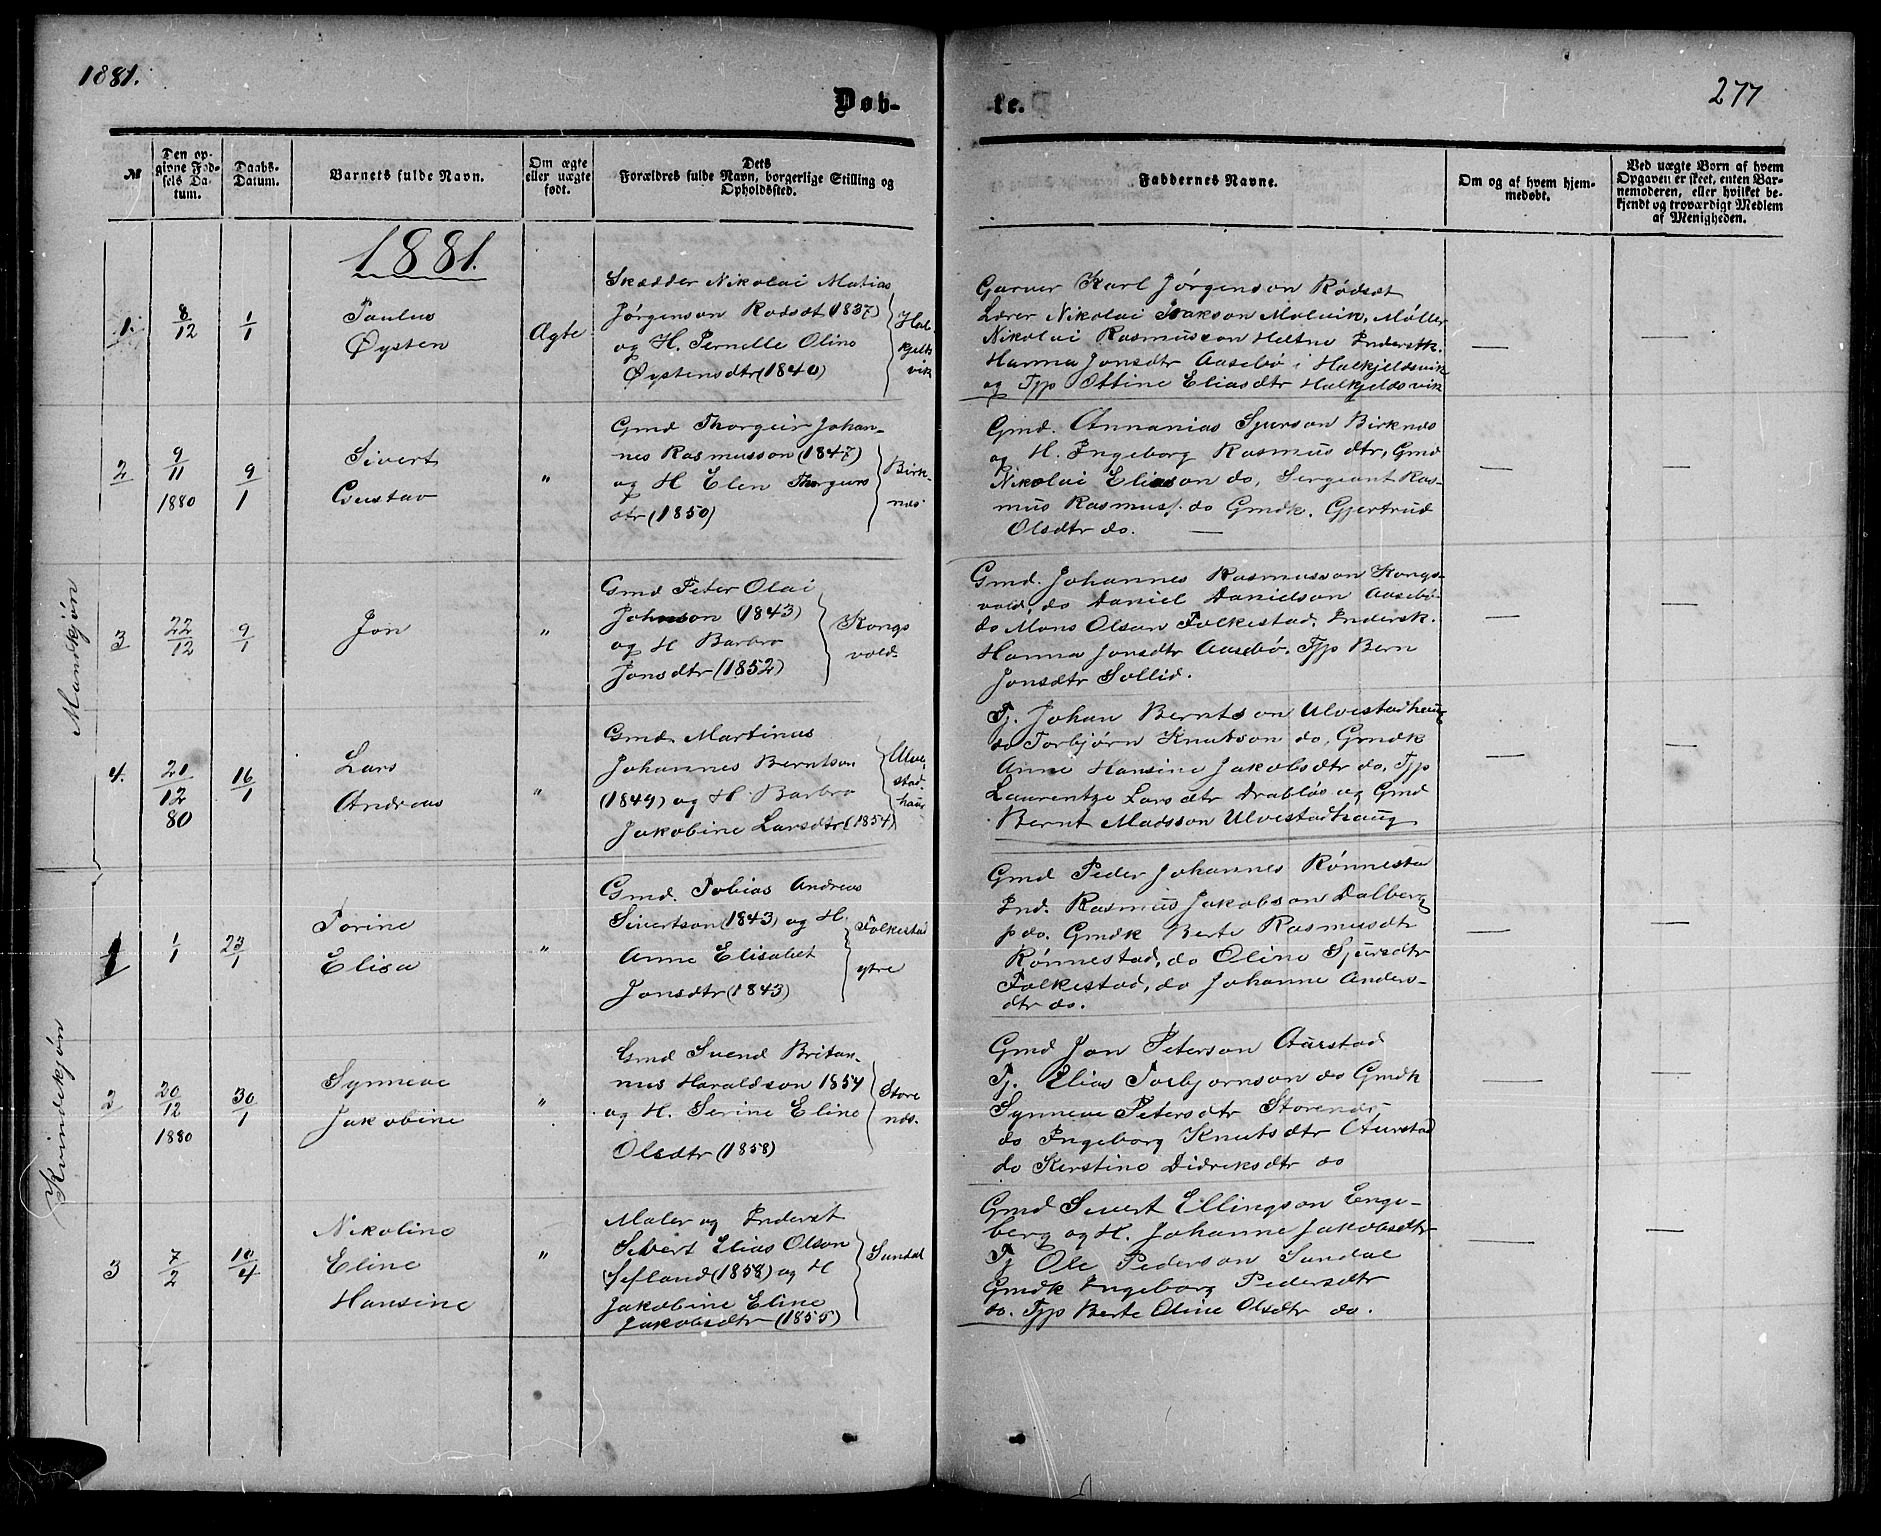 1881.
277
Døb-
te.
№
Den op-
givne Fød-
sels Da-
tum.
Daabs-
Datum.
Barnets fulde Navn.
Om ægte
eller uægte
født.
Dets
Forældres fulde Navn, borgerlige Stilling og
Opholdssted.
Faddernes Navne.
Om og af hvem hjem-
medøbt.
Ved uægte Born af hvem
Opgaven er skeet, enten Bar-
nemoderen, eller hvilket be-
kjendt og troværdigt Medlem
af Menigheden.
1881.
Mandkjøn
1.
8/12
1/1
Paulus
Øysten
Ægte
Skrædder Nikolai Matias
Jørgenson Rødsæt (1837)
og H. Pernelle Oline
Øystensdtr (1840)
Hal
kjelds
vik
Garver Karl Jørgenson Rødsæt
Lærer Nikolai Isakson Molvik, Møller
Nikolai Rasmusson Heltne Inderstk.
Hanna Jonsdtr Aasebø i Halkjeldsvik
og Tjp Ottine Eliasdtr Halkjeldsvik
—
—
2
9/11
1880
9/1
Sivert
Gustav
"
Gmd Thorgeir Johan-
nes Rasmusson (1847)
og H Elen Thorgeirs
dtr (1850)
Birk-
nes
Gmd. Annanias Sjurson Birknes
og H. Ingeborg Rasmusdtr, Gmd
Nikolai Eliasson do, Sergeant Ras-
mus Rasmuss. do Gmdk. Gjertrud
Olsdtr do. —
—
—
3
22/12
9/1
Jon
"
Gmd Peter Olai
Johnson (1843)
og H Barbro
Jonsdtr (1852)
Kongs
vold
Gmd. Johannes Rasmusson Kongs-
vold, do Daniel Danielson Aasebø
do Mons Olson Folkestad, Indersk.
Hanna Jonsdtr Aasebø. Tjp Bern
Jonsdtr Sollid.
—
—
4.
21/12
80
16/1
Lars
Andreas
"
Gmd. Martinus
Johannes Berntson
(1849) og H. Barbro
Jakobine Larsdtr (1854)
Ulve
stad
haug
Tj. Johan Berntson Ulvestadhaug
do Torbjørn Knutson do, Gmdk
Anne Hansine Jakobsdtr do, Tjp
Laurentze Larsdtr Drabløs og Gmd
Bernt Madsson Ulvestadhaug
—
—
Kvindekjøn
1
1/1
23/1
Torine
Elisa
"
Gmd. Tobias Andreas
Sivertson (1843) og H.
Anne Elisabet
Jonsdtr (1843)
Folkestad
ytre
Gmd Peder Johannes Rønnestad
Ind. Rasmus Jakobson Dalberg
p do. Gmdk Berte Rasmusdtr
Rønnestad, do Oline Sjursdtr
Folkestad, do Johanne Anders-
dtr do.
—
—
2
20/12
1880
30/1
Synneve
Jakobine
"
Gmd Svend Britan-
nus Haraldson 1854
og H. Serine Eline
Olsdtr (1858)
Store
nes.
Gmd Jon Peterson Aurstad
Tj. Elias Torbjornson do Gmdk
Synneve Petersdtr Storenes
do Ingeborg Knutsdtr Aurstad
do Kerstine Didreksdtr do
—
—
3
7/2
10/4
Nikoline
Eline
Hansine
"
Maler og Inderst
Sivert Elias Olson
Sefland (1858) og H
Jakobine Eline
Jakobsdtr (1855)
Sundal
Gmd Sivert Ellingson Enge-
berg og H. Johanne Jakobsdtr
Tj Ole Pederson Sundal
Gmdk Ingeborg Pedersdtr
do. Tjp Berte Oline Olsdtr do.
—
—